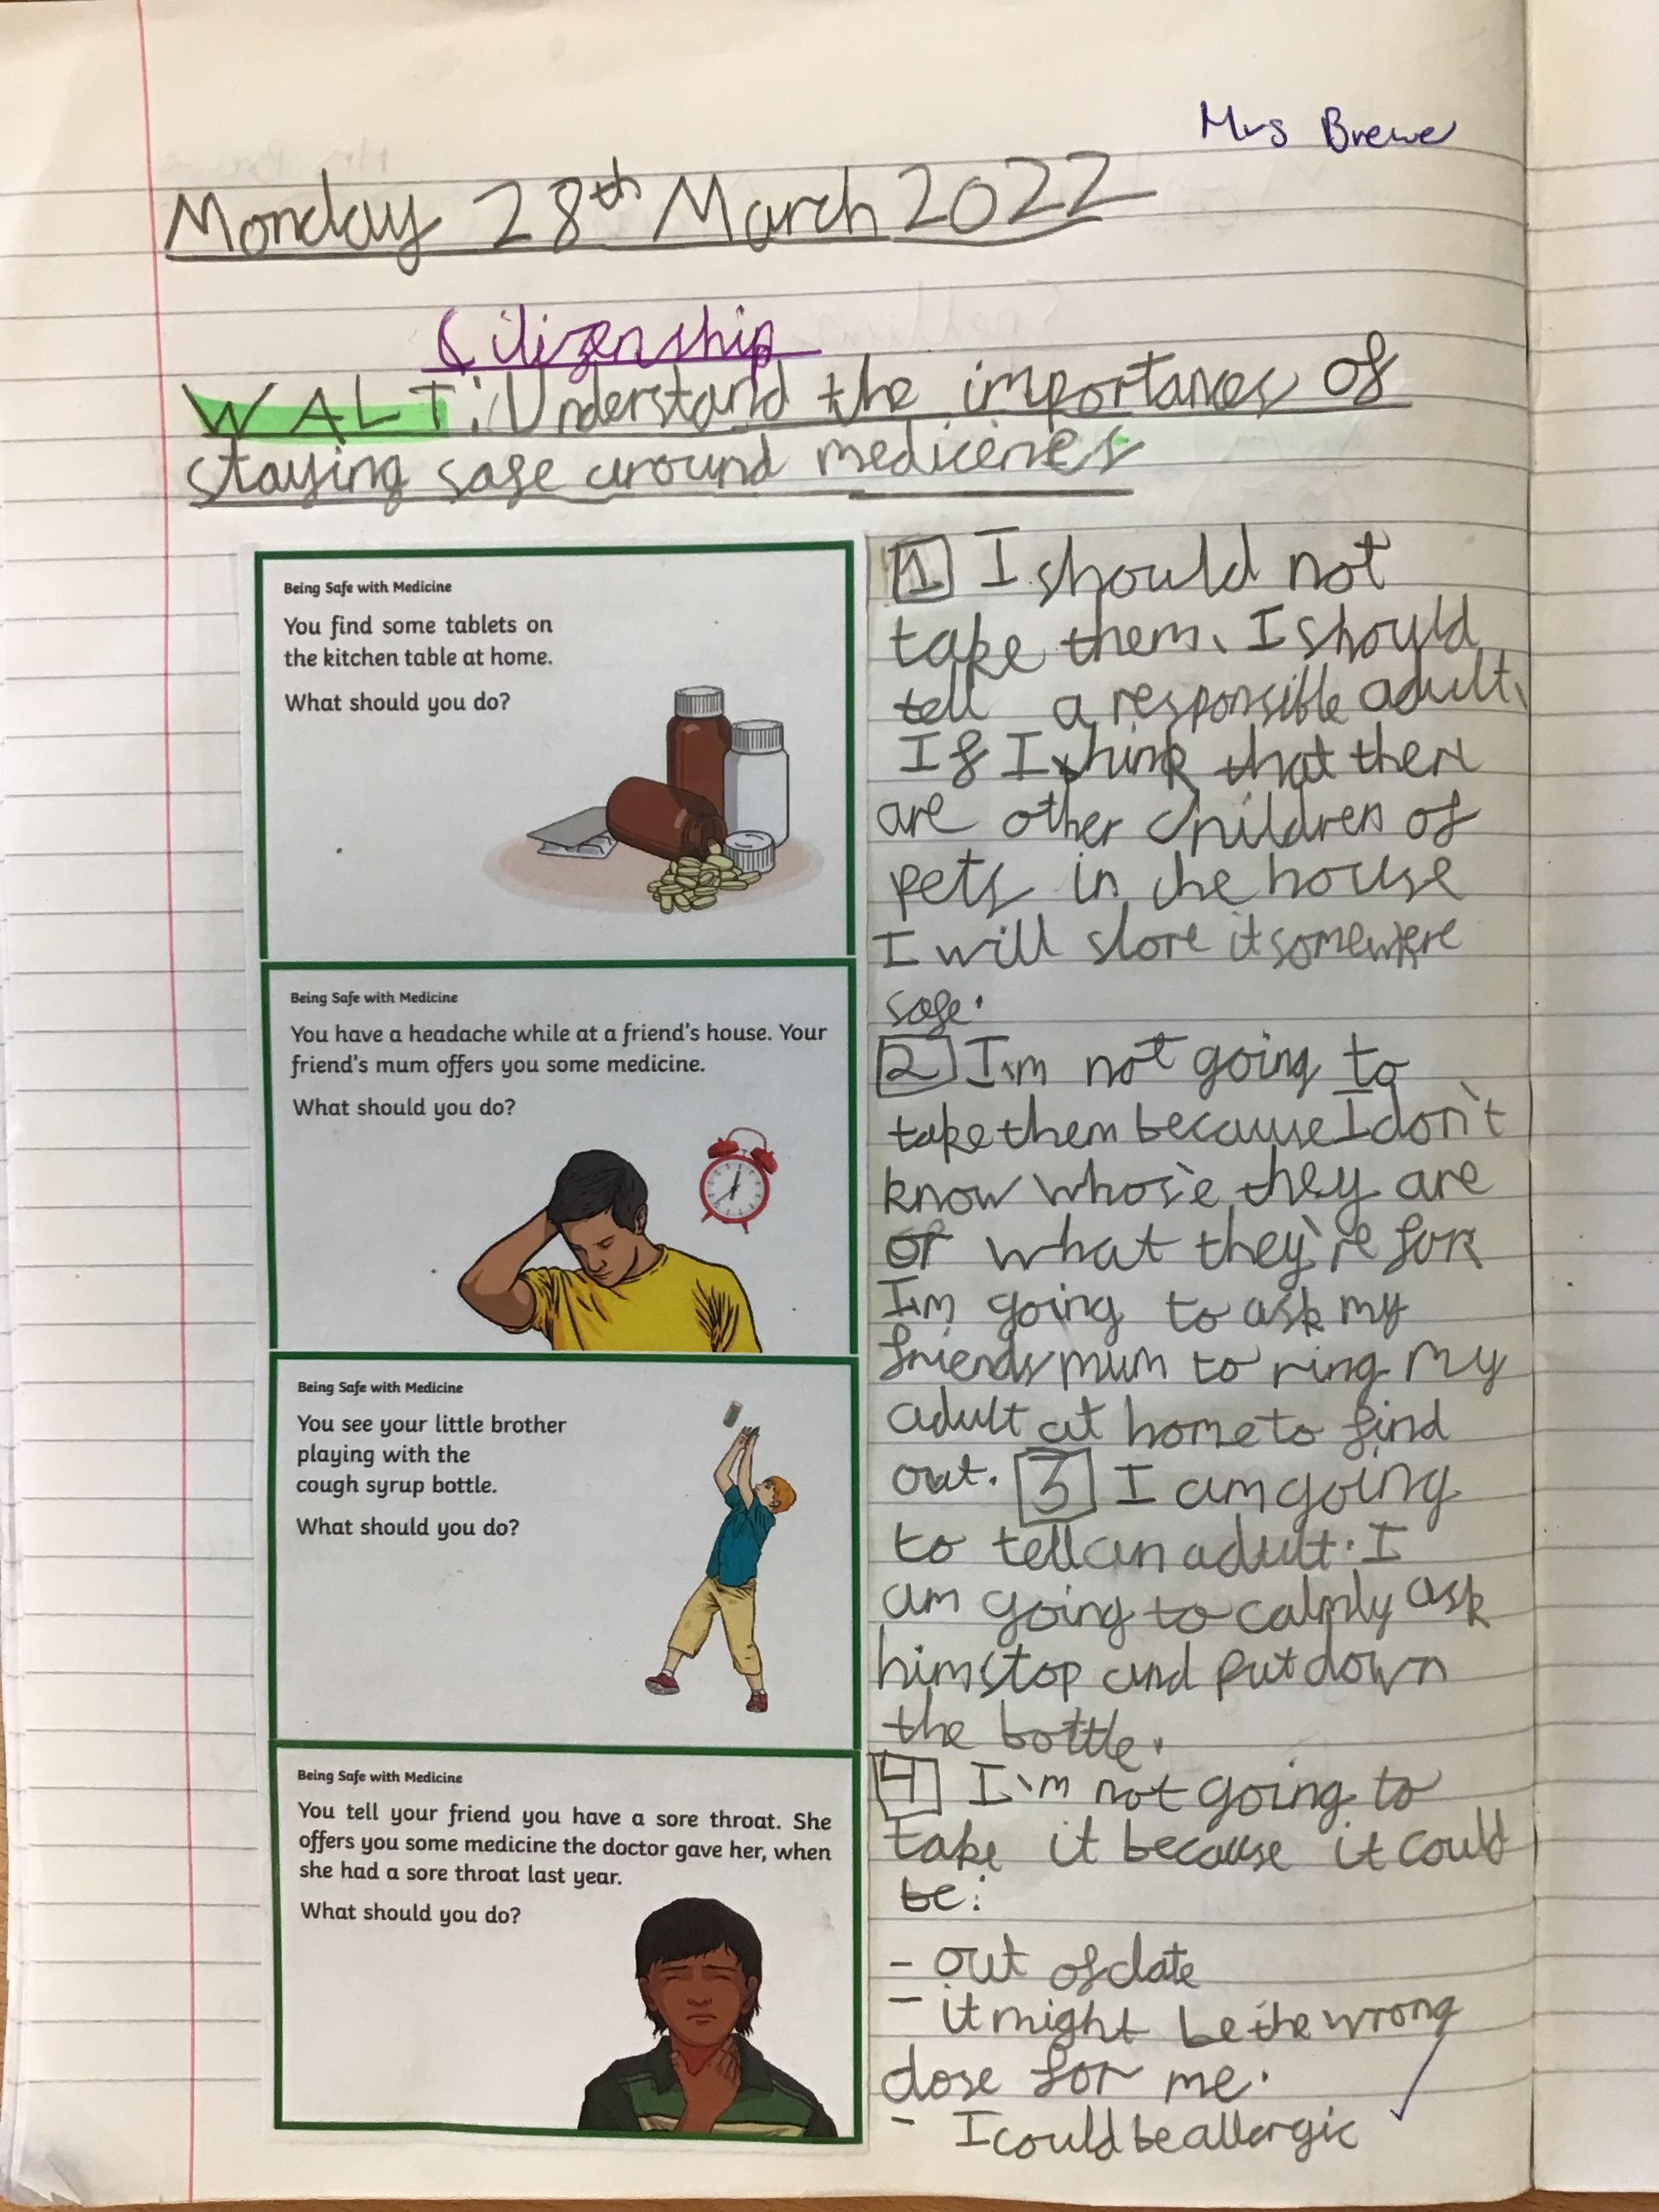 Mrs Brewer
Monday 28th March 2022
Citizenship
WALT: Understand the importances of
staying safe around medicenes
Being Safe with Medicine
You find some tablets on
the kitchen table at home.
What should you do?
1 I should not
take them. I should
tell a responsible adult.
If I think that there
are other children of
pets in the house
I will store it somewhere
safe.
Being Safe with Medicine
You have a headache while at a friend's house. Your
friend's mum offers you some medicine.
What should you do?
2 I'm not going to
take them because I don't
know whos'e they are
or what they're for
I'm going to ask my
friends mum to ring my
adult at home to find
out. 3 I am going
Being Safe with Medicine
You see your little brother
playing with the
cough syrup bottle.
What should you do?
to tell an adult. I
am going to calmly ask
him stop and put down
the bottle.
Being Safe with Medicine
You tell your friend you have a sore throat. She
offers you some medicine the doctor gave her, when
she had a sore throat last year.
What should you do?
4 I'm not going to
take it because it could
be:
- out of date
- it might be the wrong
dose for me.
- I could be allergic